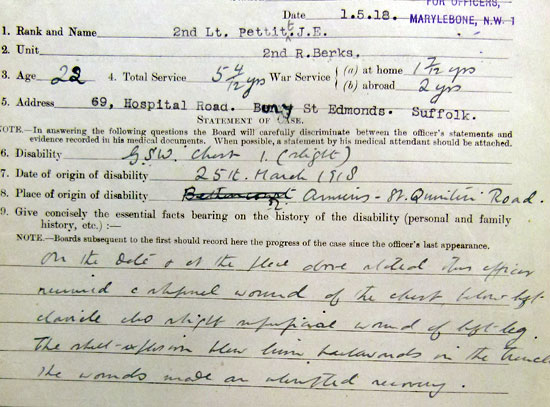 FOR OFFICERS,
Date 1.5.18. MARYLEBONE, N.W 1
1. Rank and Name 2nd Lt. Pettitt J.E.
2. Unit 2nd R.Berks.
3. Age 22 4. Total Service 5 4/12 yrs War Service { (a) at home 1 7/12 yrs
(b) abroad 2 yrs
5. Address 69, Hospital Road. Bury St Edmonds. Suffolk.
STATEMENT OF CASE.
NOTE.—In answering the following questions the Board will carefully discriminate between the officer's statements and
evidence recorded in his medical documents. When possible, a statement by his medical attendant should be attached.
6. Disability G.S.W. Chest 1. (slight)
7. Date of origin of disability 25th. March 1918
8. Place of origin of disability Amiens - St. Quentin Road.
9. Give concisely the essential facts bearing on the history of the disability (personal and family
history, etc.) :—
NOTE.—Boards subsequent to the first should record here the progress of the case since the officer's last appearance.
On the date & at the place above stated this officer
received a shrapnel wound of the chest below left
clavicle also slight superficial wound of left leg.
The shell-explosion blew him backwards in the trench
The wounds made an uninterrupted recovery.